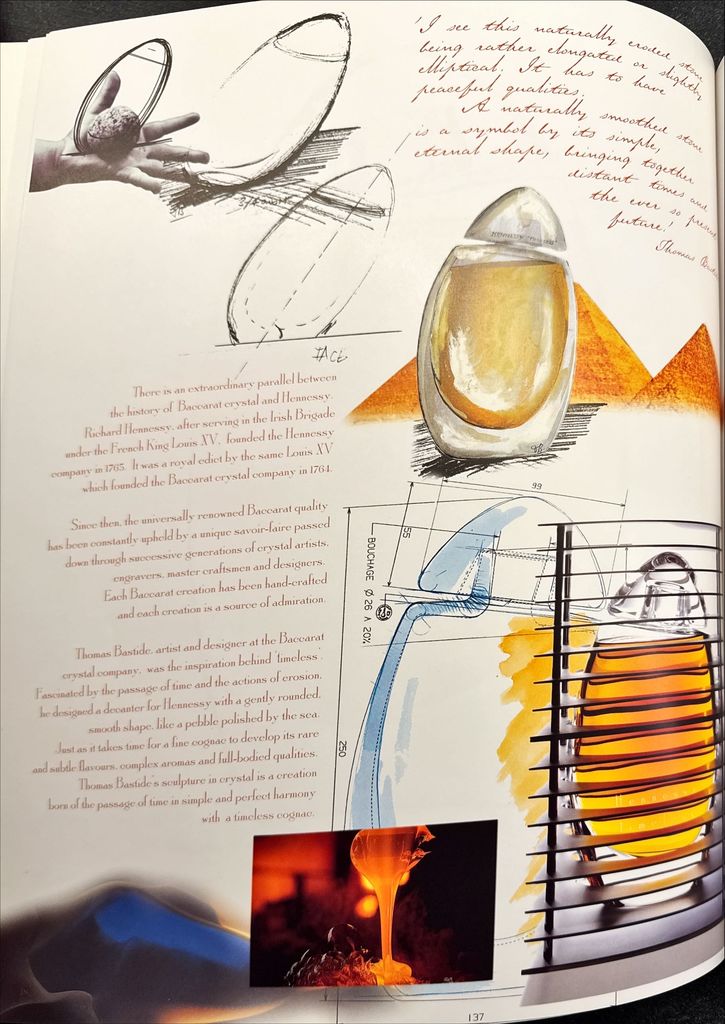 'I see this naturally eroded stone
being rather elongated or slightly
elliptical. It has to have
peaceful qualities.
A naturally smoothed stone
is a symbol by its simple,
eternal shape, bringing together
distant times and
the ever so present
future!
Thomas
FACE
HENNESSY
There is an extraordinary parallel between
the history of Baccarat crystal and Hennessy.
Richard Hennessy, after serving in the Irish Brigade
under the French King Louis XV, founded the Hennessy
company in 1765. It was a royal edict by the same Louis XV
which founded the Baccarat crystal company in 1764.
Since then, the universally renowned Baccarat quality
has been constantly upheld by a unique savoir-faire passed
down through successive generations of crystal artists,
engravers, master craftsmen and designers.
Each Baccarat creation has been hand-crafted
and each creation is a source of admiration.
Thomas Bastide, artist and designer at the Baccarat
crystal company, was the inspiration behind 'timeless'.
Fascinated by the passage of time and the actions of erosion,
he designed a decanter for Hennessy with a gently rounded,
smooth shape, like a pebble polished by the sea.
Just as it takes time for a fine cognac to develop its rare
and subtle flavours, complex aromas and full-bodied qualities,
Thomas Bastide's sculpture in crystal is a creation
born of the passage of time in simple and perfect harmony
with a timeless cognac.
99
55
BOUCHAGE Ø 26 A 20%
250
Hennessy
137